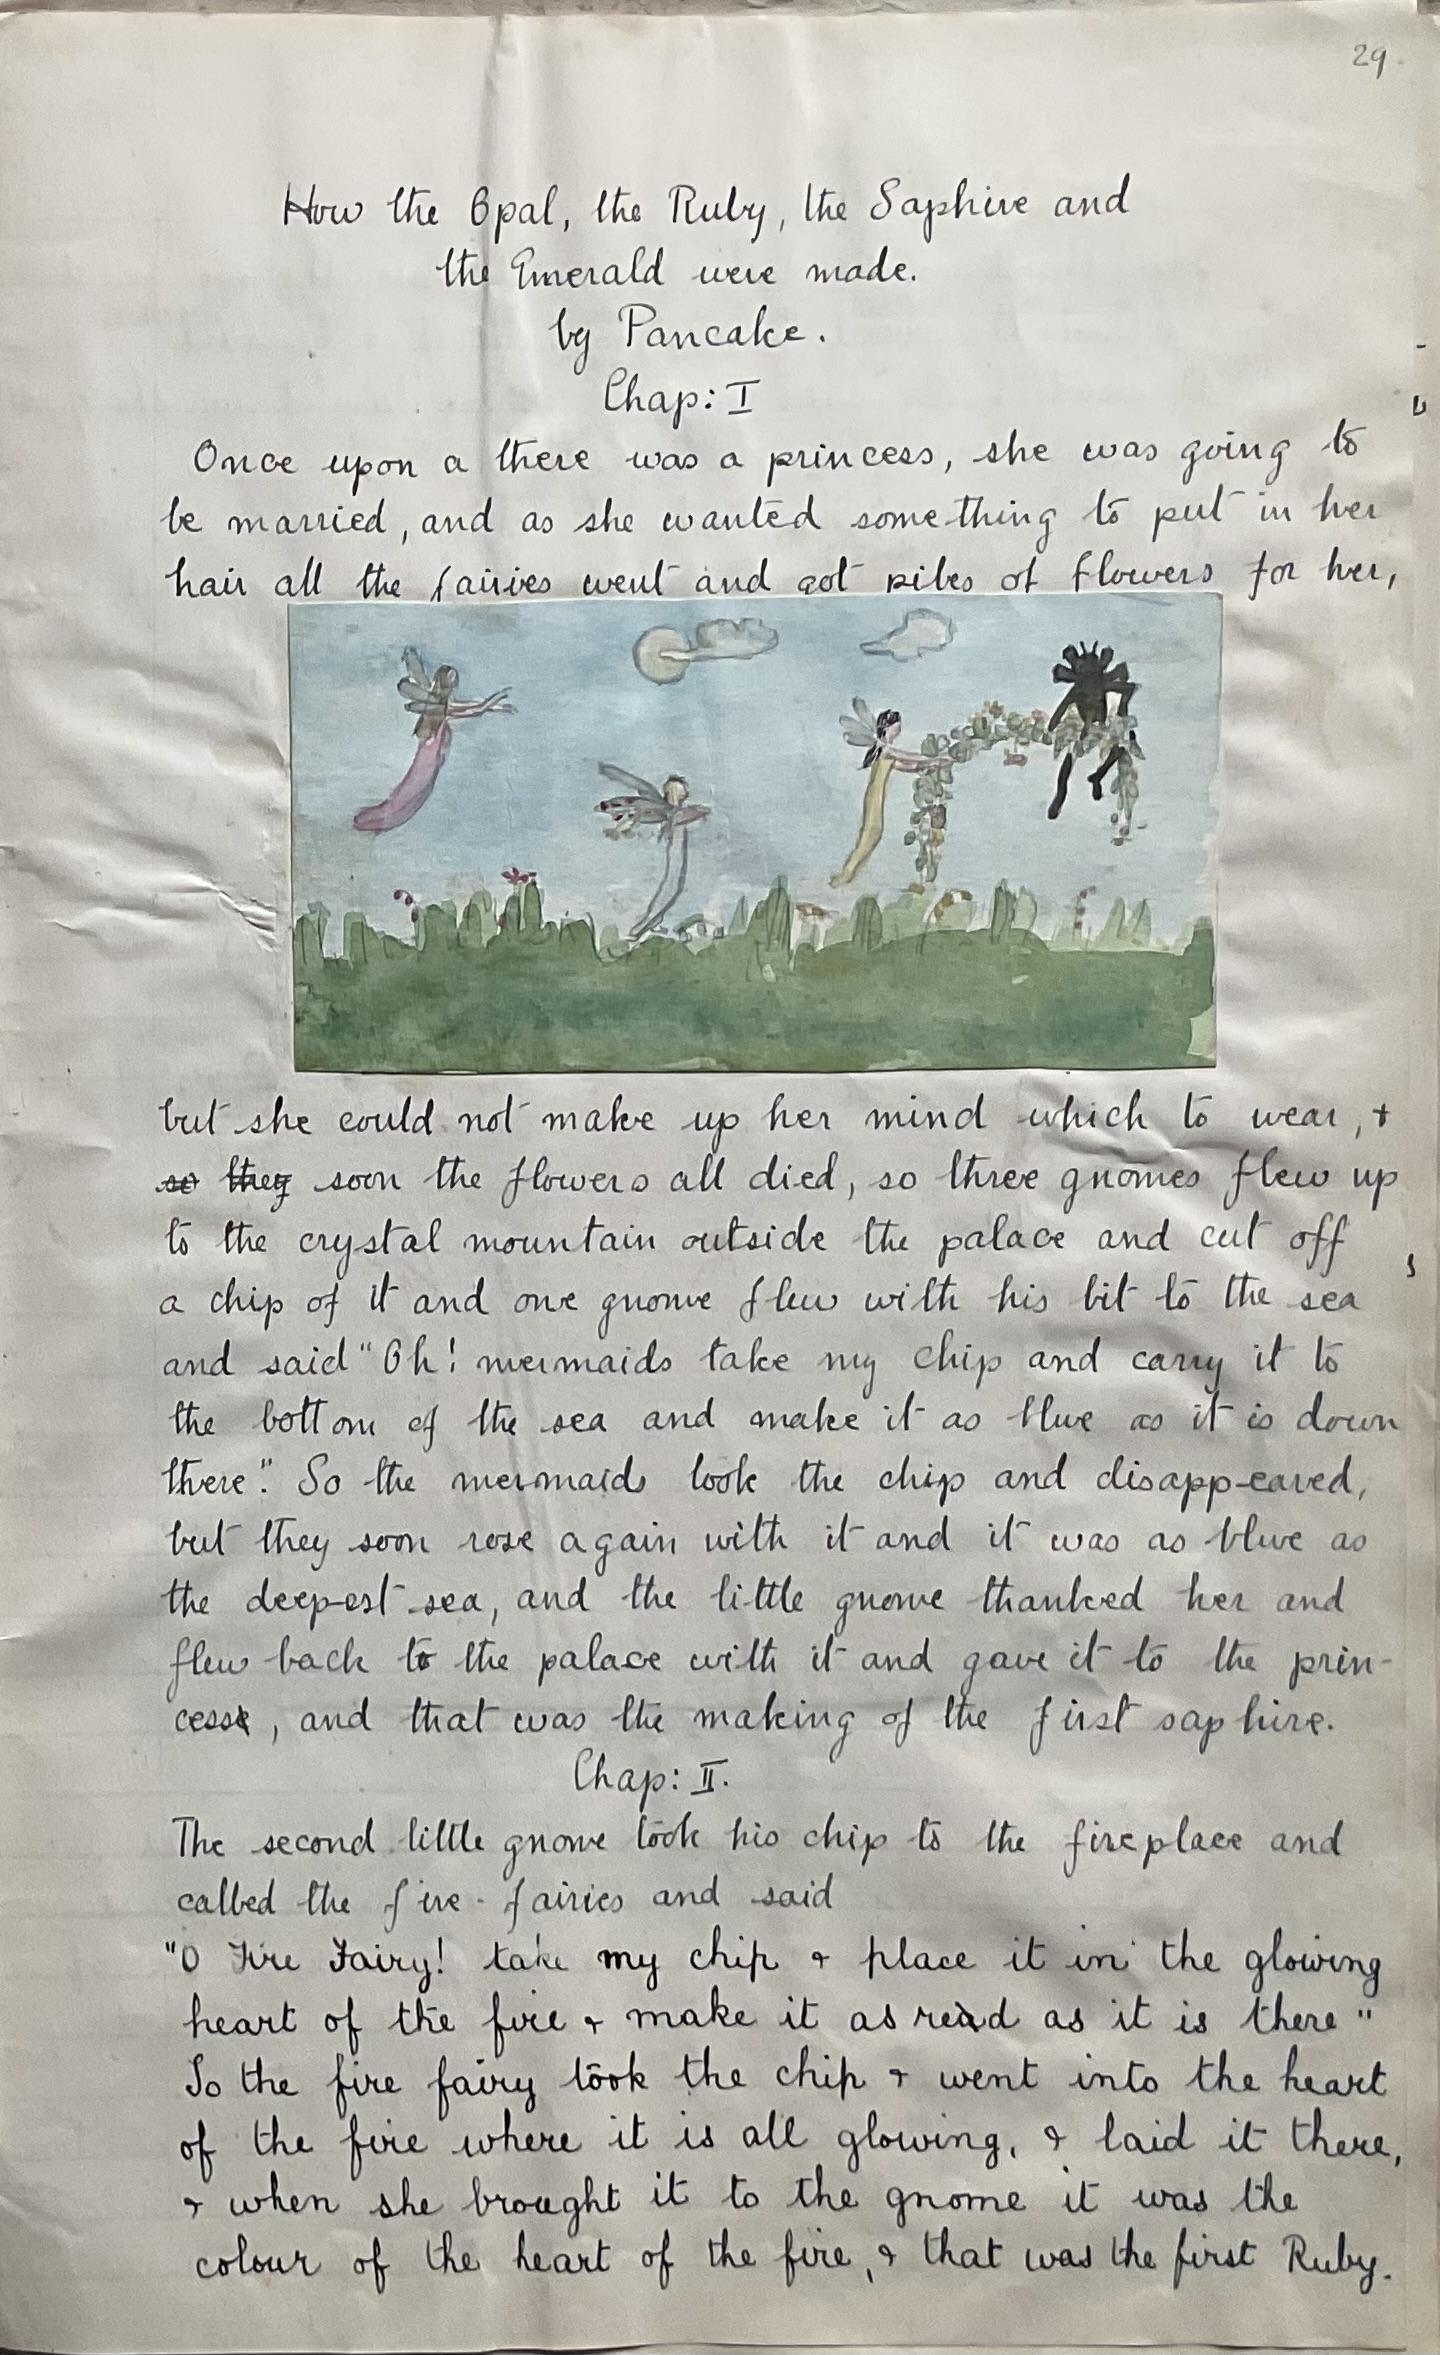 29
How the Opal, the Ruby, the Saphire and
the Emerald were made.
by Pancake.
Chap: I
Once upon a there was a princess, she was going to
be married, and as she wanted something to put in her
hair all the fairies went and got piles of flowers for her,
but she could not make up her mind which to wear, +
so they soon the flowers all died, so three gnomes flew up
to the crystal mountain outside the palace and cut off
a chip of it and one gnome flew with his bit to the sea
and said "Oh! mermaids take my chip and carry it to
the bottom of the sea and make it as blue as it is down
there". So the mermaids took the chip and disapp-eared,
but they soon rose again with it and it was as blue as
the deepest sea, and the little gnome thanked her and
flew back to the palace with it and gave it to the prin-
cess, and that was the making of the first saphire.
Chap: II.
The second little gnome took his chip to the fireplace and
called the fire-fairies and said
"O Fire Fairy! take my chip + place it in the glowing
heart of the fire + make it as read as it is there"
So the fire fairy took the chip + went into the heart
of the fire where it is all glowing, + laid it there,
+ when she brought it to the gnome it was the
colour of the heart of the fire, + that was the first Ruby.